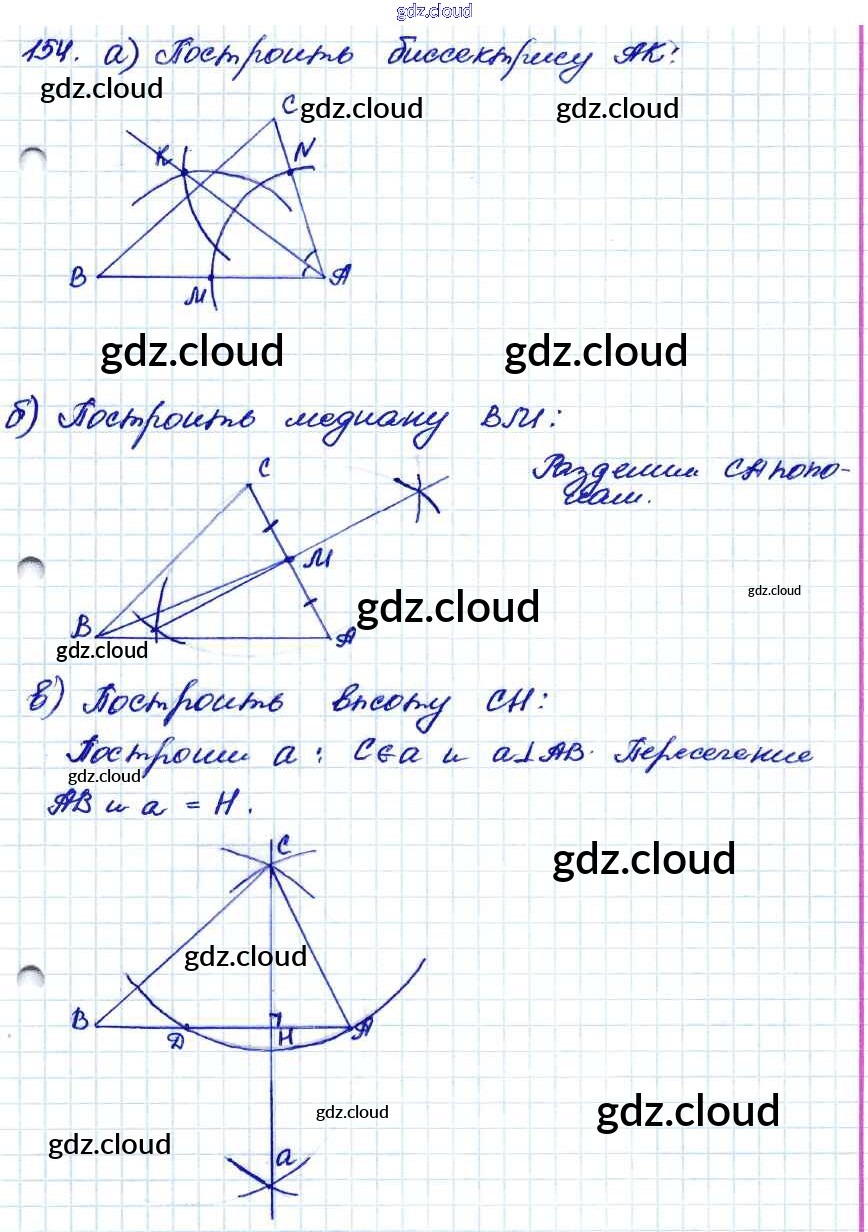 gdz.cloud
154. а) Построить биссектрису АК:
gdz.cloud gdz.cloud gdz.cloud
C
K N
B M A
gdz.cloud gdz.cloud
б) Построить медиану ВМ:
C
Разделим СА попо-
лам.
M
gdz.cloud gdz.cloud
B A
gdz.cloud
в) Построить высоту СН:
Построим а : С∈а и а⊥АВ. Пересечение
gdz.cloud
АВ и а = Н.
C
gdz.cloud
gdz.cloud
B D H A
gdz.cloud gdz.cloud
gdz.cloud a